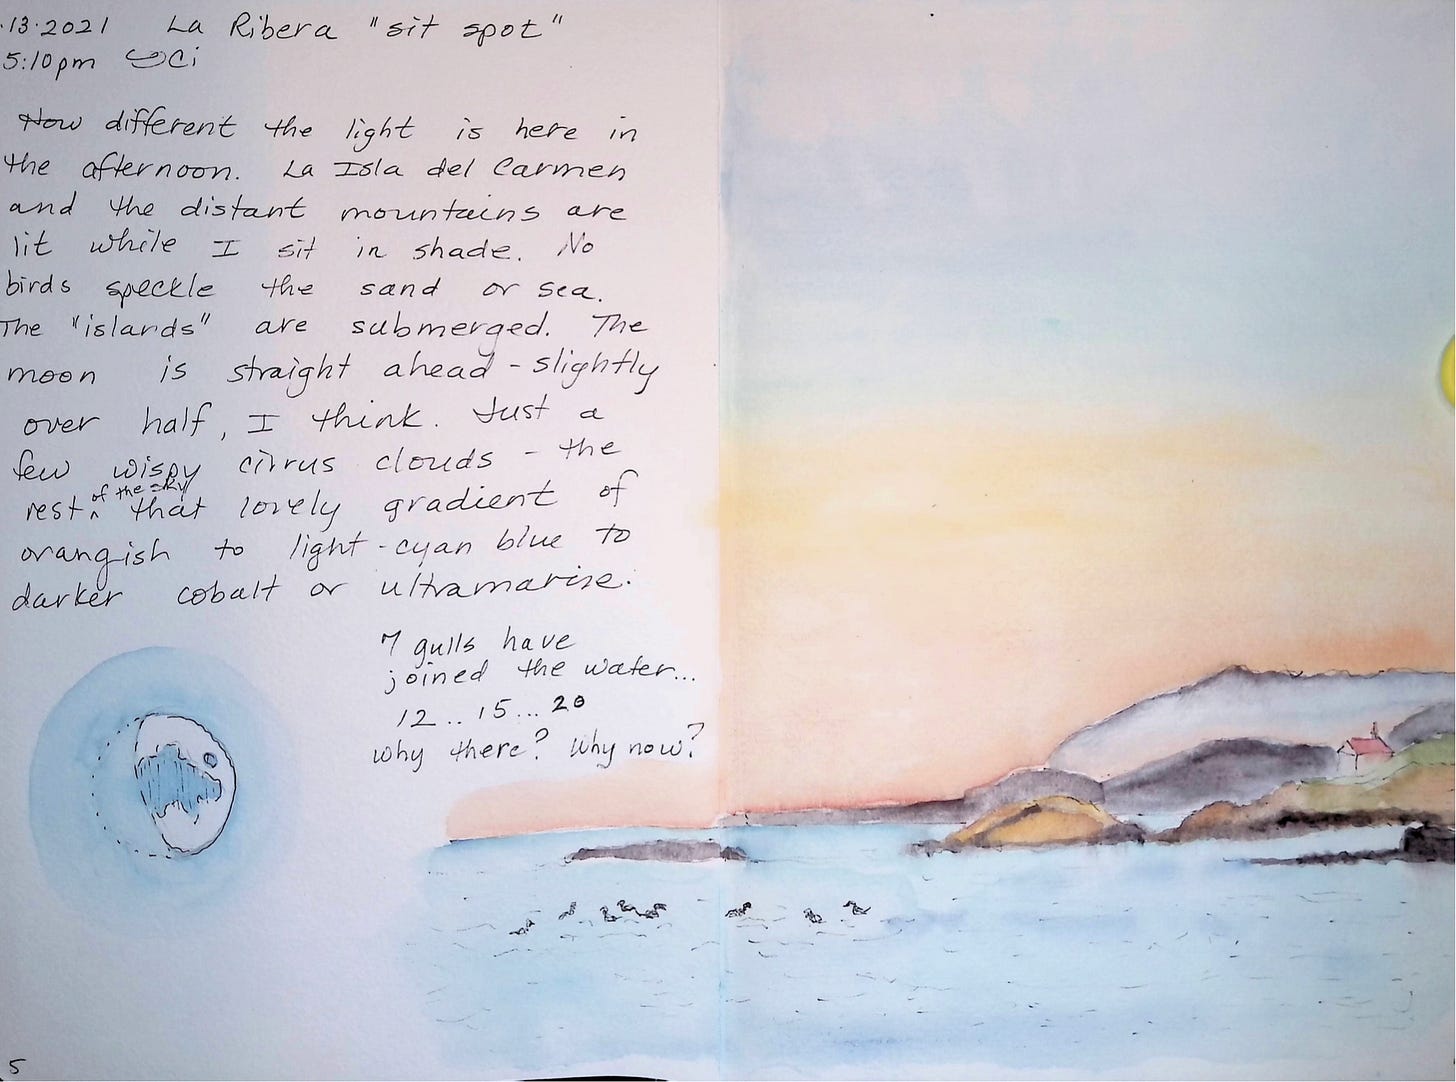 ·13·2021 La Ribera "sit spot"
5:10pm Ci
How different the light is here in
the afternoon. La Isla del Carmen
and the distant mountains are
lit while I sit in shade. No
birds speckle the sand or sea.
The "islands" are submerged. The
moon is straight ahead - slightly
over half, I think. Just a
few wispy cirrus clouds - the
rest ^ of the sky that lovely gradient of
orangish to light-cyan blue to
darker cobalt or ultramarine.
7 gulls have
joined the water...
12.. 15... 20
why there? Why now?
5